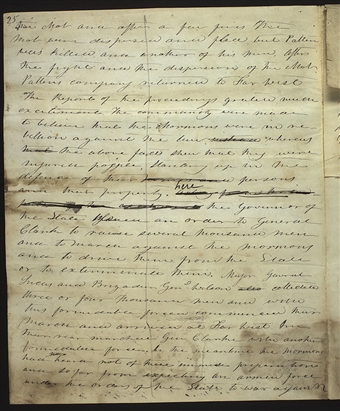 25
the Mob and after a few fires the
Mob were dispersed and place but Patten
was killed and another of his men, After
the fight and the dispersion of the Mob
Pattens company returned to Far West
The Report of the proceedings created much
excitement the community were made
to believe that the Mormons were in re
bellion against the law whereas
the above facts shew that they were
injured people, Standing up in the
defence of their persons
and their property, here
the Governor of
the State issued an order to General
Clark to raise several thousand men
and to march against the mormons
and to drive them from the State
or to exterminate them, Major General
Lucas and Brigadier Genl Wilson collected
three or four thousand men and with
this formidable force commenced their
March and arrived at Far West In
their rear marched Gen Clark with another
formidable force, In the meantime the Mormons
had heard not of these immense preparations
and so far from expecting an armed force
under the orders of the State to war against